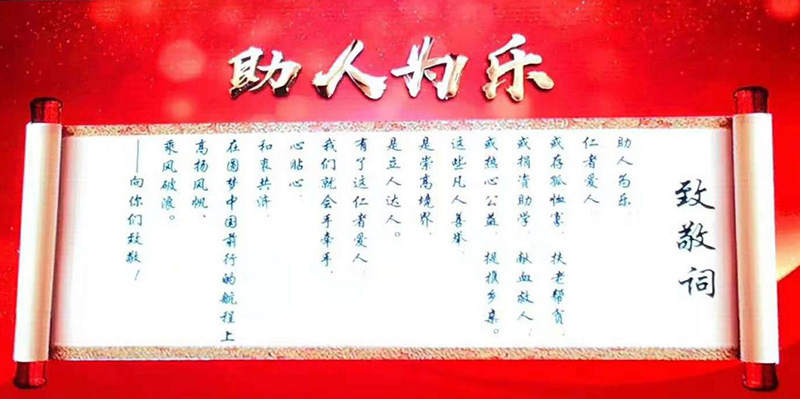 助人为乐
致敬词
助人为乐，
仁者爱人，
或存孤恤寡、扶老帮贫，
或捐资助学、献血救人，
或热心公益、提携乡亲。
这些凡人善举，
是崇高境界，
是立人达人。
有了这仁者爱人，
我们就会手牵手，
心贴心，
和衷共济，
在圆梦中国前行的航程上
高扬风帆，
乘风破浪。
——向你们致敬！